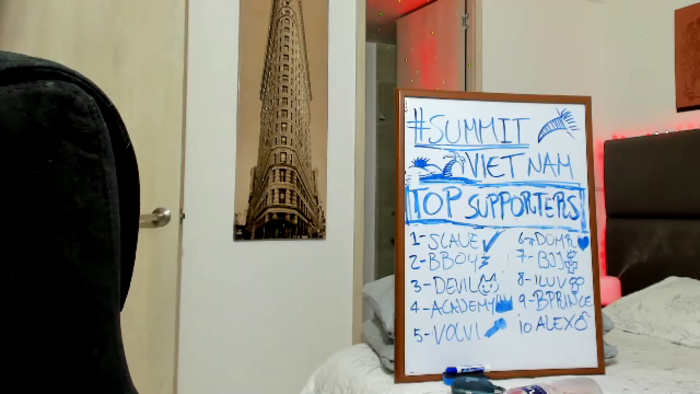 #SUMMIT
VIETNAM
TOP SUPPORTERS
1-SLAVE
2-BBOY
3-DEVIL
4-ACADEMY
5-VOLVI
6-DOMPL
7-BJJ
8-ILUV
9-BPRINCE
10 ALEX